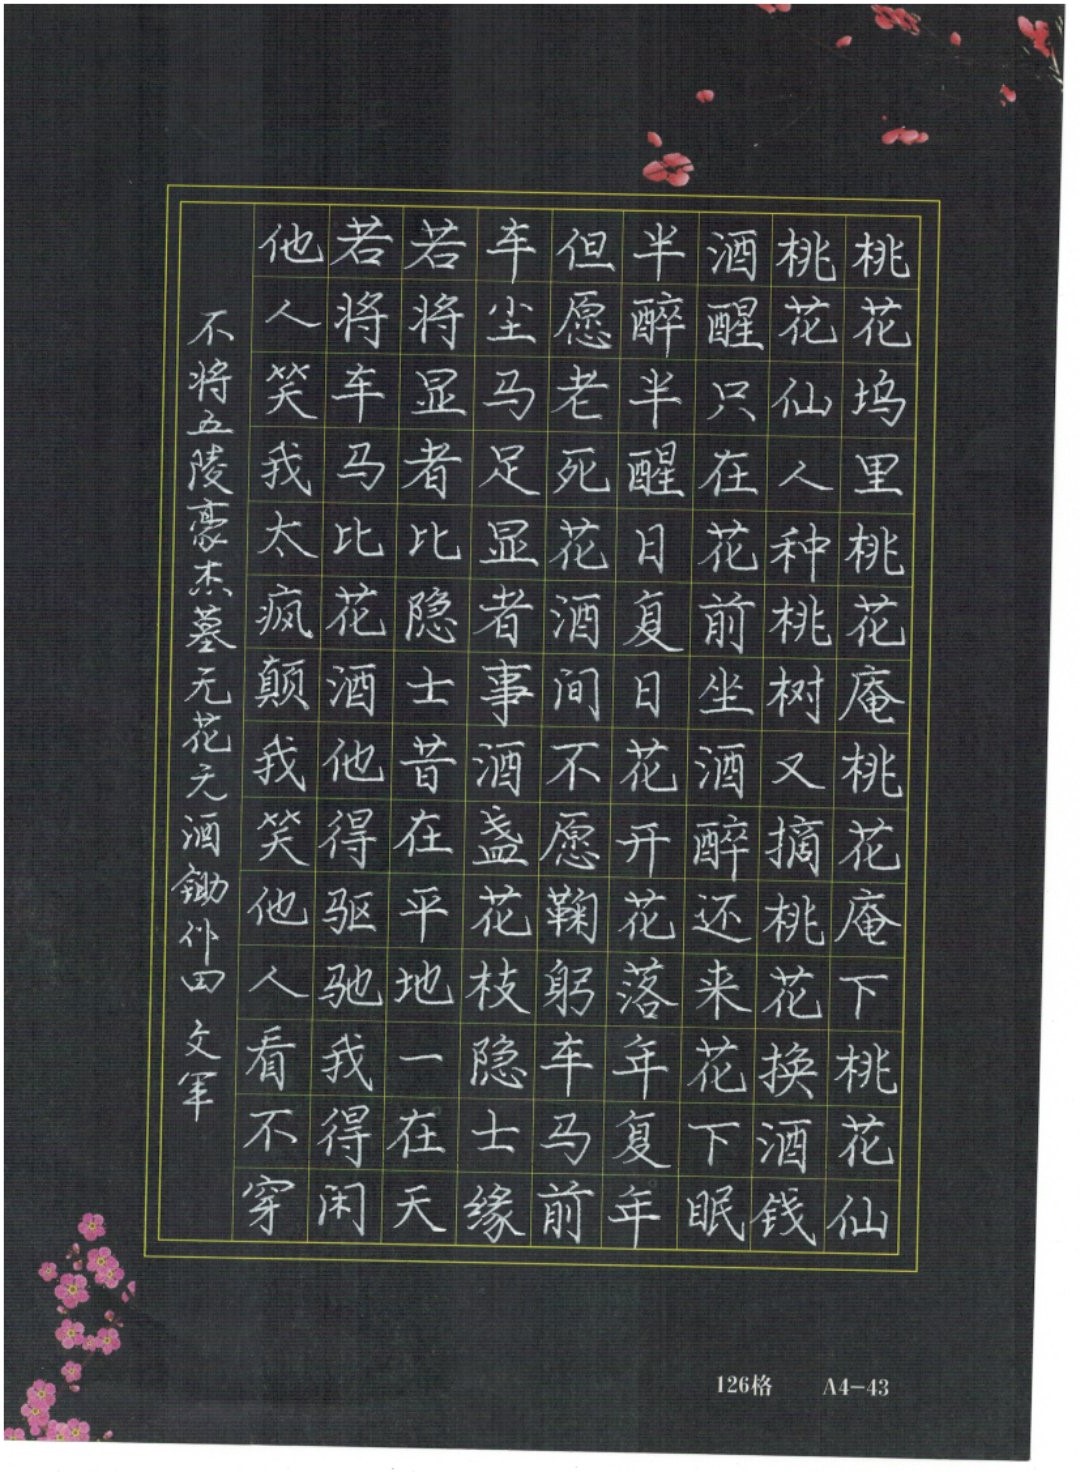 桃花坞里桃花庵桃花庵下桃花仙
桃花仙人种桃树又摘桃花换酒钱
酒醒只在花前坐酒醉还来花下眠
半醉半醒日复日花开花落年复年
但愿老死花酒间不愿鞠躬车马前
车尘马足显者事酒盏花枝隐士缘
若将显者比隐士昔在平地一在天
若将车马比花酒他得驱驰我得闲
他人笑我太疯颠我笑他人看不穿
不将五陵豪杰墓无花无酒锄作田 文军
126格 A4-43